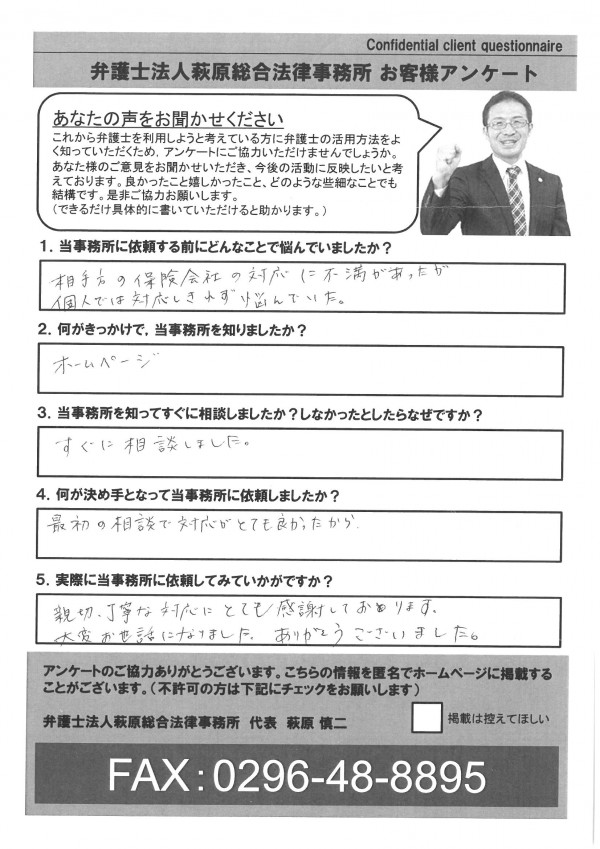 Confidential client questionnaire
弁護士法人萩原総合法律事務所 お客様アンケート
あなたの声をお聞かせください
これから弁護士を利用しようと考えている方に弁護士の活用方法をよ
く知っていただくため，アンケートにご協力いただけませんでしょうか。
あなた様のご意見をお聞かせいただき、今後の活動に反映したいと考
えております。良かったこと嬉しかったこと、どのような些細なことでも
結構です。是非ご協力お願いします。
（できるだけ具体的に書いていただけると助かります。）
1．当事務所に依頼する前にどんなことで悩んでいましたか？
相手方の保険会社の対応に不満があったが
個人では対応しきれず悩んでいた。
2．何がきっかけで，当事務所を知りましたか？
ホームページ
3．当事務所を知ってすぐに相談しましたか？しなかったとしたらなぜですか？
すぐに相談しました。
4．何が決め手となって当事務所に依頼しましたか？
最初の相談で対応がとても良かったから
5．実際に当事務所に依頼してみていかがですか？
親切、丁寧な対応にとても感謝しております。
大変お世話になりました。ありがとうございました。
アンケートのご協力ありがとうございます。こちらの情報を匿名でホームページに掲載する
ことがございます。（不許可の方は下記にチェックをお願いします）
弁護士法人萩原総合法律事務所 代表 萩原 慎二
掲載は控えてほしい
FAX：0296-48-8895